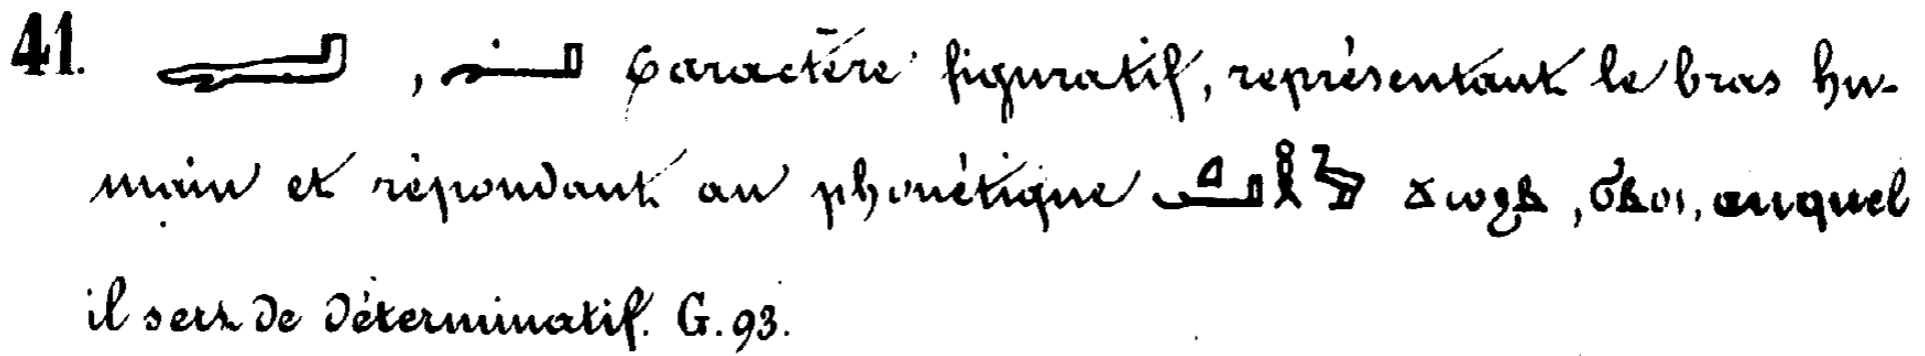 41. 𓂝, 𓂝 Caractère figuratif, représentant le bras hu-
main et répondant au phonétique ϫⲱϩⲃ, ϭⲃⲟⲓ, auquel
il sert de déterminatif. G. 93.